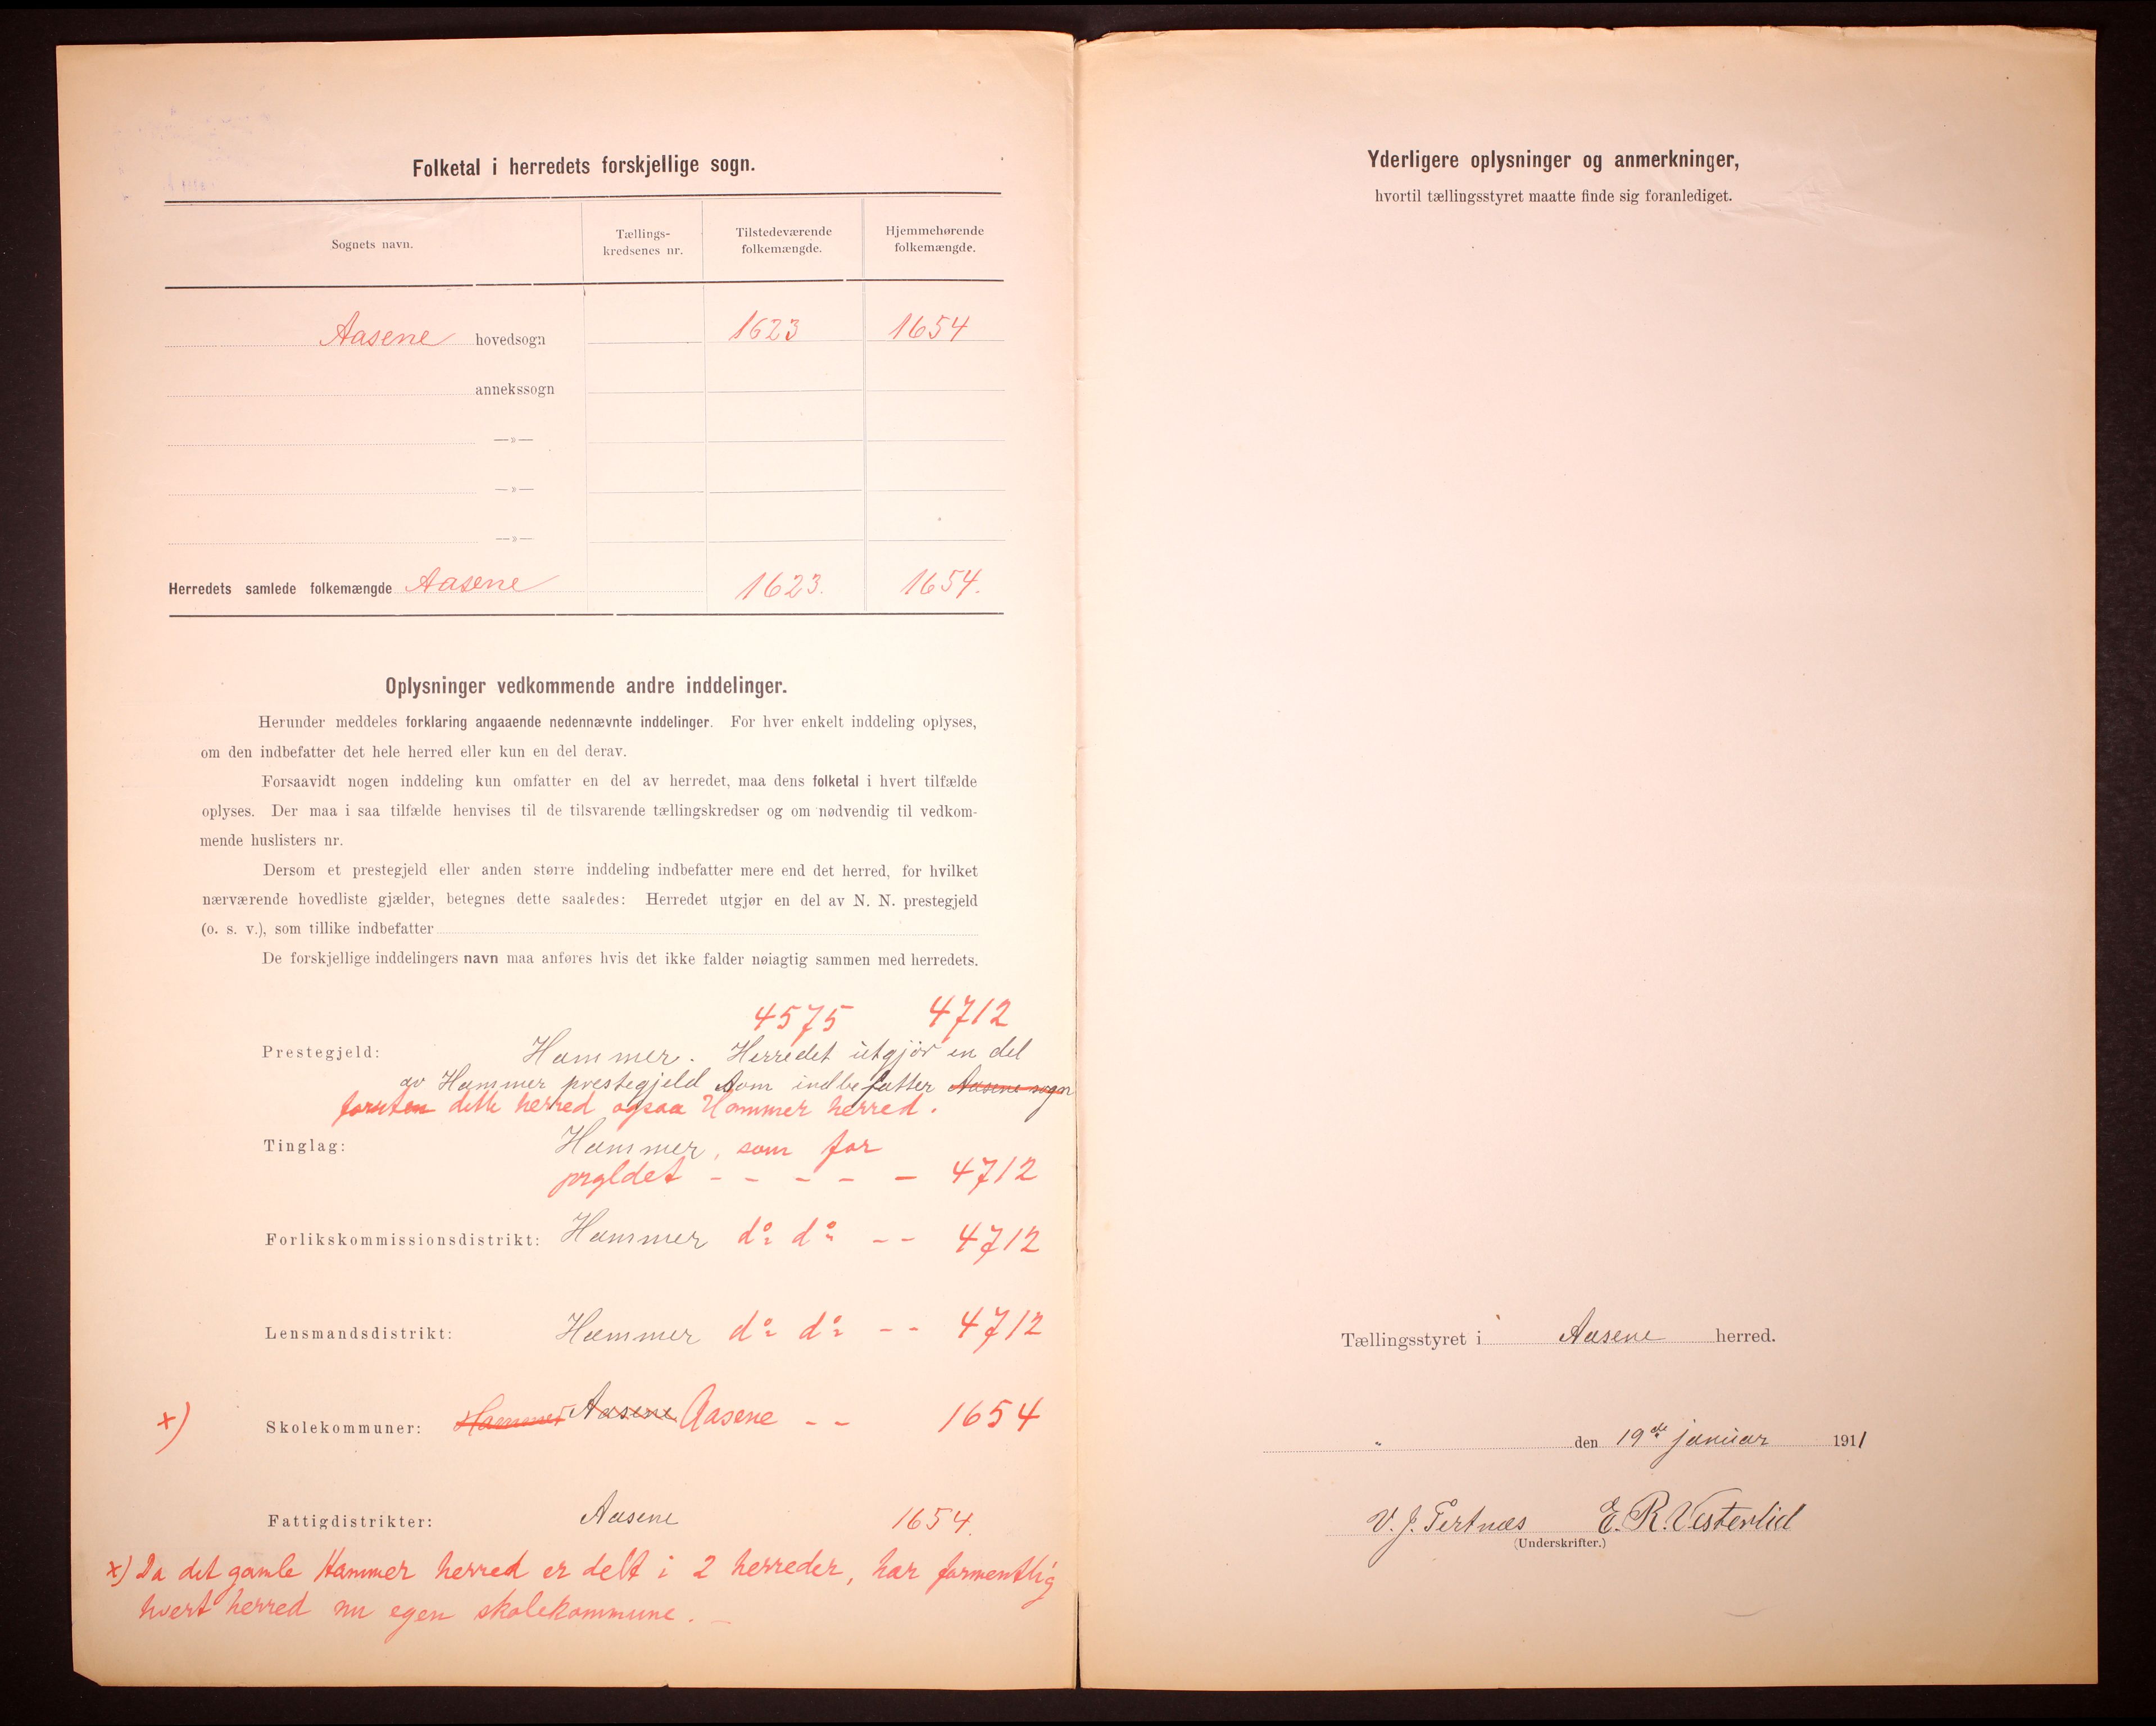 Folketal i herredets forskjellige sogn.
Sognets navn.
Tællings-
kredsenes nr.
Tilstedeværende
folkemængde.
Hjemmehørende
folkemængde.
Aasene hovedsogn 1623 1654
annekssogn
—»—
—»—
—»—
Herredets samlede folkemængde Aasene 1623. 1654.
Oplysninger vedkommende andre inddelinger.
Herunder meddeles forklaring angaaende nedennævnte inddelinger. For hver enkelt inddeling oplyses,
om den indbefatter det hele herred eller kun en del derav.
Forsaavidt nogen inddeling kun omfatter en del av herredet, maa dens folketal i hvert tilfælde
oplyses. Der maa i saa tilfælde henvises til de tilsvarende tællingskredser og om nødvendig til vedkom-
mende huslisters nr.
Dersom et prestegjeld eller anden større inddeling indbefatter mere end det herred, for hvilket
nærværende hovedliste gjælder, betegnes dette saaledes: Herredet utgjør en del av N. N. prestegjeld
(o. s. v.), som tillike indbefatter
De forskjellige inddelingers navn maa anføres hvis det ikke falder nøiagtig sammen med herredets.
4575 4712
Prestegjeld: Hammer. Herredet utgjör en del
av Hammer prestegjeld som indbefatter Aasene sogn
foruten dette herred ogsaa Hammer herred.
Tinglag: Hammer, som for
prgldet - - - - - 4712
Forlikskommissionsdistrikt: Hammer do do - - 4712
Lensmandsdistrikt: Hammer do do - - 4712
x) Skolekommuner: Hammer Aasene Aasene - - 1654
Fattigdistrikter: Aasene 1654.
x) Da det gamle Hammer herred er delt i 2 herreder, har formentlig
hvert herred nu egen skolekommune. -
Yderligere oplysninger og anmerkninger,
hvortil tællingsstyret maatte finde sig foranlediget.
Tællingsstyret i Aasene herred.
" den 19de januar 1911
V. J. Tertnæs E. R. Vesterlid
(Underskrifter.)